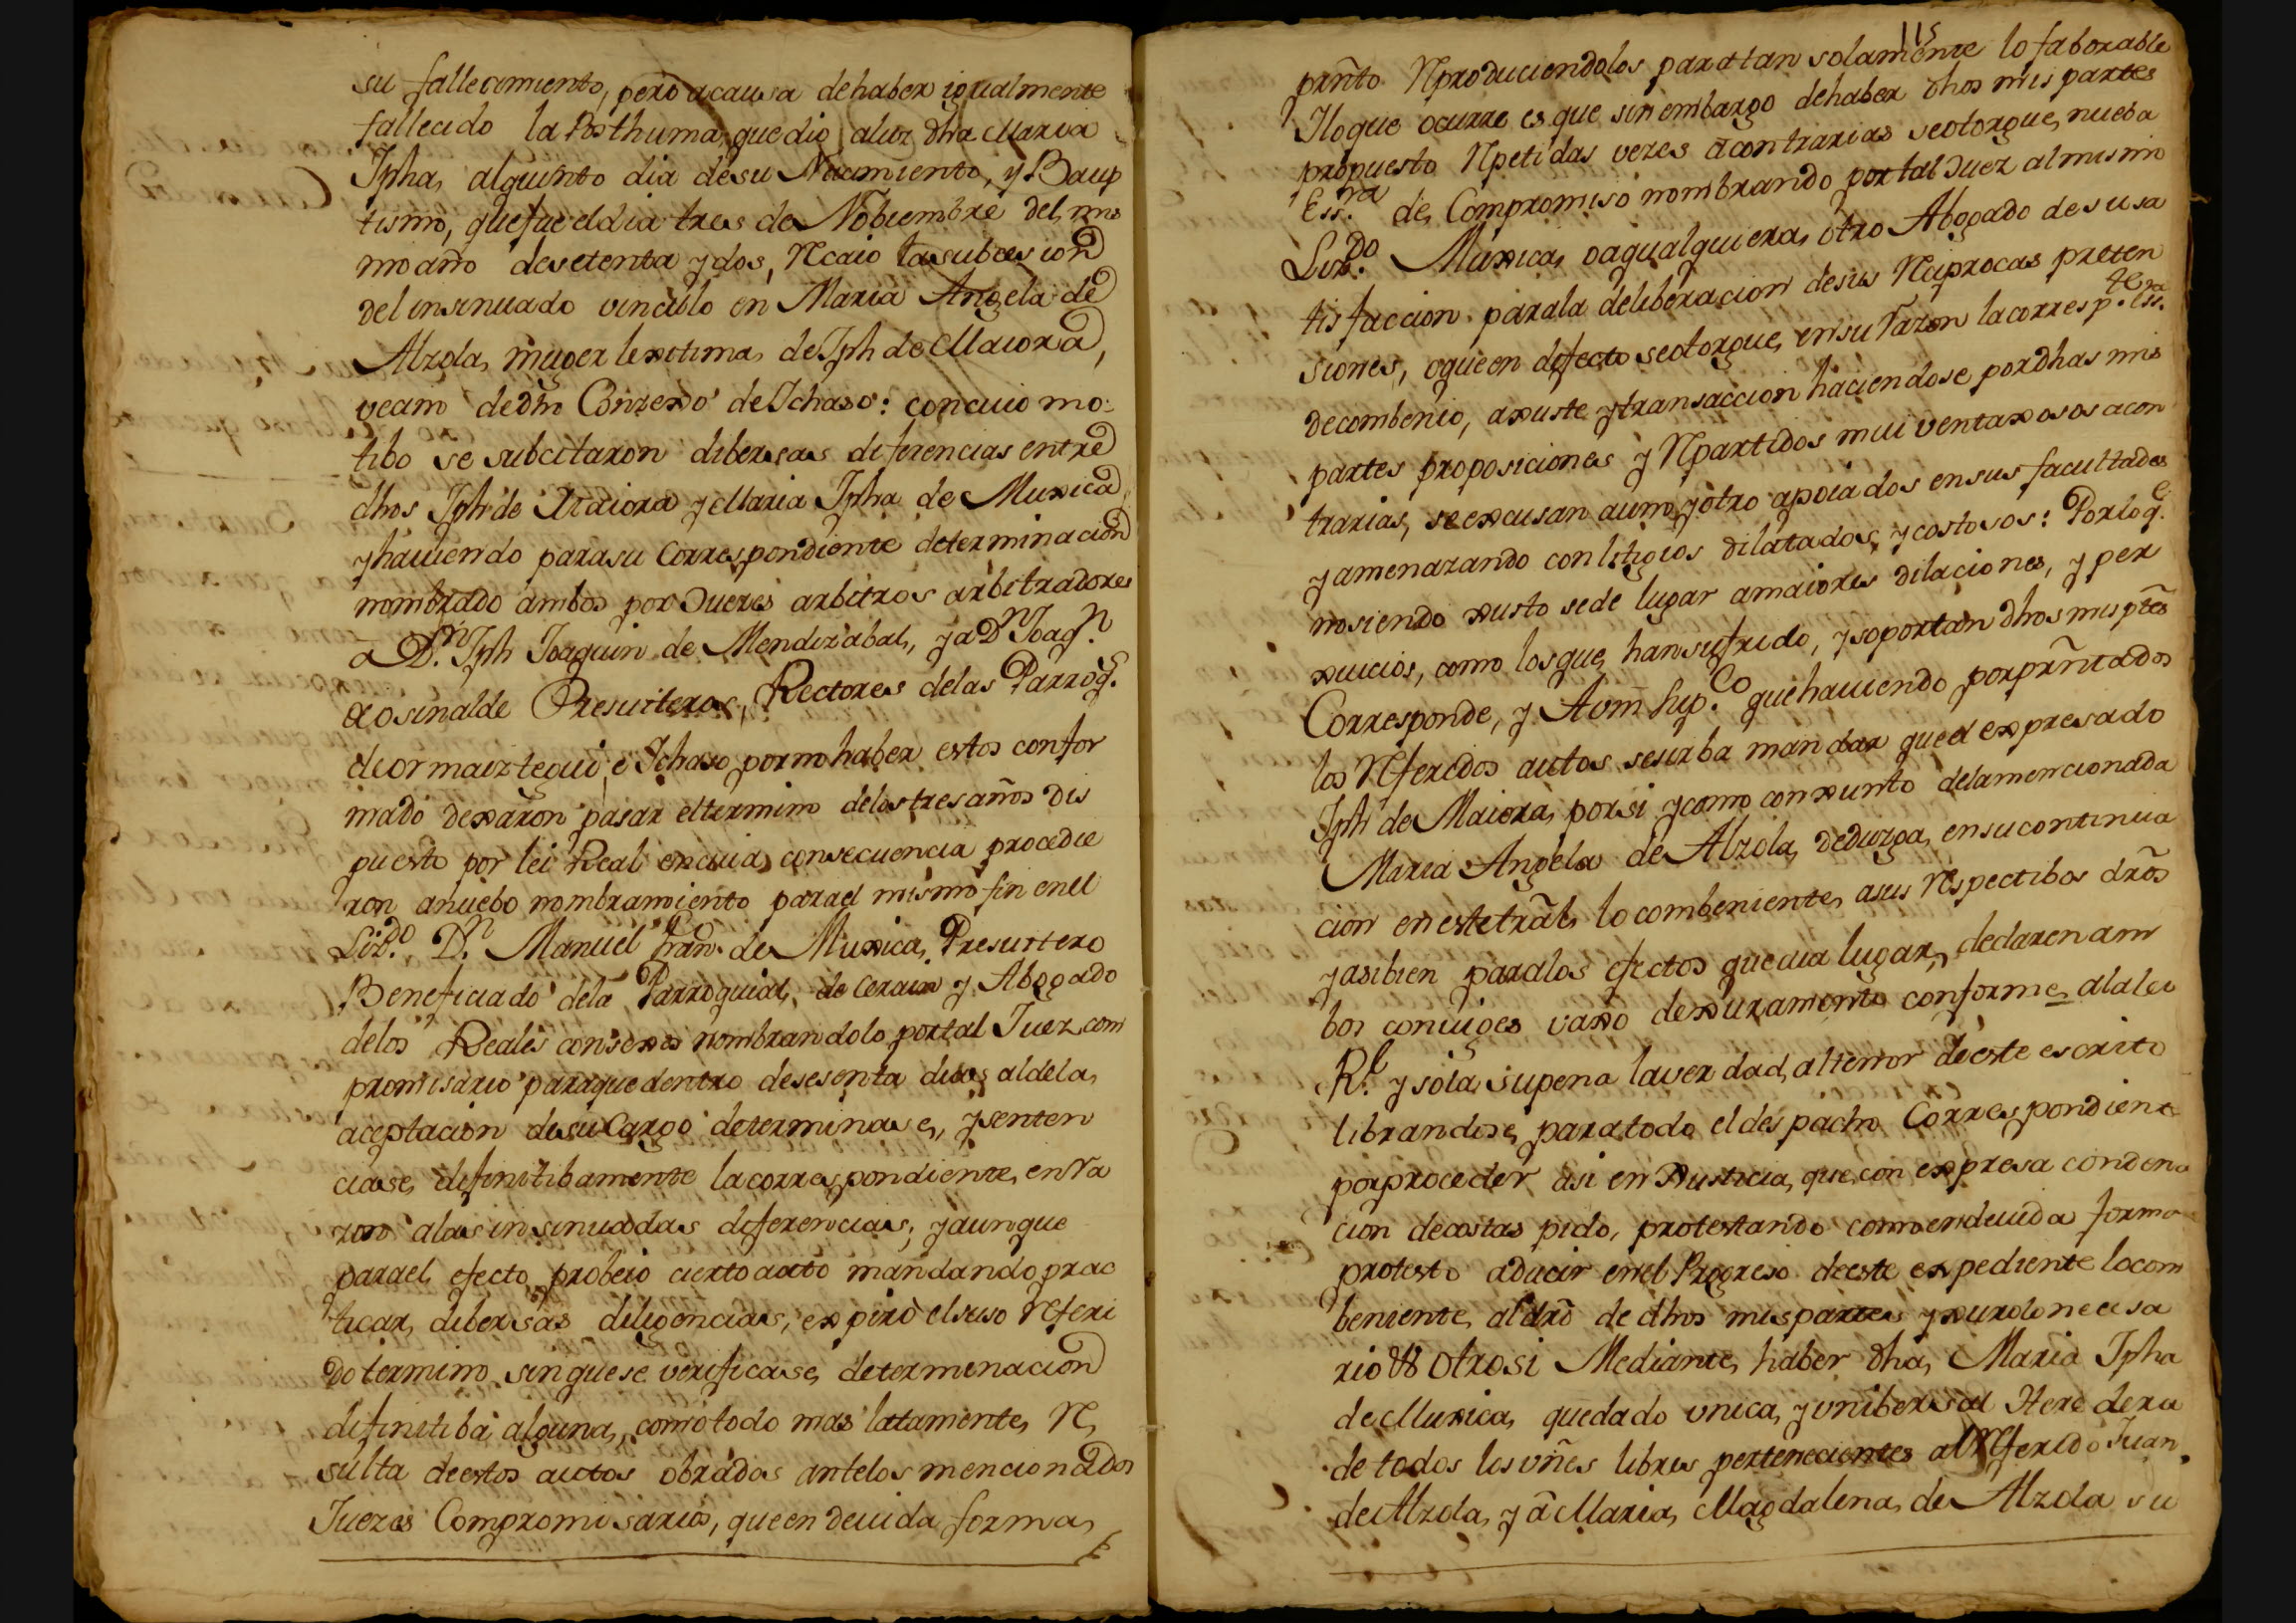 su fallecimiento, pero acausa dehaber igualmente
fallecido la Posthuma, que dio aluz dha Maria
Jpha, alquinto dia desu Nacimiento, y Baup
tismo, quefue eldia tres de Nobiembre del mis
mo año desetenta ydos, Recaio lasubcesion
del insinuado vinculo en Maria Angela de
Alzola, muger lexitima de Jph de Maiora,
vecino dedho Conzexo de Ichaso: concuio mo-
tibo se subcitaron dibersas diferencias entre
dhos Jph de Maiora y Maria Jpha de Muxica,
yhauiendo parasu Correspondiente determinacion
nombrado ambos por Juezes arbitros arbitradores
a Dn. Jph Joaquin de Mendizabal, ya Dn Joaqn.
de Osinalde Presuiteros, Rectores delas Parroqs.
de ormaiztegui, e Ichaso, porno haber estos confor
mado dexaron pasar eltermino delostresaños dis
puesto por lei Real encuia consecuencia procedie
ron anuebo nombramiento parael mismo fin enel
Lizdo. Dn. Manuel Franco. de Muxica, Presuitero
Beneficiado dela Parroquial de Cerain y Abogado
delos Reales consexos nombrandolo portal Juez com
promisario paraquedentro desesenta dias aldela
aceptacion desu Cargo determinase, ysenten
ciase definitibamente lacorrespondiente, enra
zon alas insinuadas diferencias; yaunque
parael efecto probeio ciertoauto mandando prac
ticar dibersas diligencias, expiro elsuso referi
do termino sin quese verificase determinacion
definitiba alguna, como todo mas latamente Re
sulta deestos autos obrados antelos mencionados
Juezes Compromisarios, queen deuida forma
115
prñto Reproduciendolos paratan solamente lo faborable
Iloque ocurre es que sin embargo dehaber dhos mis partes
propuesto Repetidas vezes acontrarias seotorgue nueba
Essra. de Compromiso nombrando portal Juez almismo
Lizdo. Muxica, oaqualquiera otro Abogado desusa
tisfaccion parala deliberacion desus Reciprocas preten
siones, oqueen defecto seotorgue, ensu razon lacorrespte. Essra.
decombenio, axuste ytransaccion haciendose pordhas mis
partes proposiciones y Repartidos mui ventaxosos acon
trarias, seexcusan auno yotro apoiados ensus facultades
yamenazando conlitigios dilatados, ycostosos: Porloqe.
nosiendo xusto sede lugar amaiores dilaciones, y per
xuicios, como losque hansufrido, ysoportan dhosmisptes
Corresponde, y Avm supco. quehauiendo porprñtados
los Referidos autos sesirba mandar queel expresado
Jph de Maiora, porsi ycomo conxunto delamencionada
Maria Angela de Alzola, deduzga ensucontinua
cion enestetral lo combeniente, asus respectibos dros
yasibien paralos efectos queaia lugar, declarenam
bos coniuges vaxo dexuramento conforme alalei
Rl. ysola supena laverdad, altenor deeste escrito
librandose paratodo eldespacho Correspondiente
porproceder asi en Xusticia, que con expresa condena
cion decostas pido, protestando comoendeuida forma
protesto aducir enel Progreso deeste expediente locom
beniente aldro de dhos mispartes yxurolonecesa
rio Otrosi Mediante haber dha Maria Jpha
de Muxica, quedado unica, yuniberssal Heredera
de todos los vñes libres pertenecientes alReferido Juan
de Alzola, y a Maria Magdalena de Alzola su